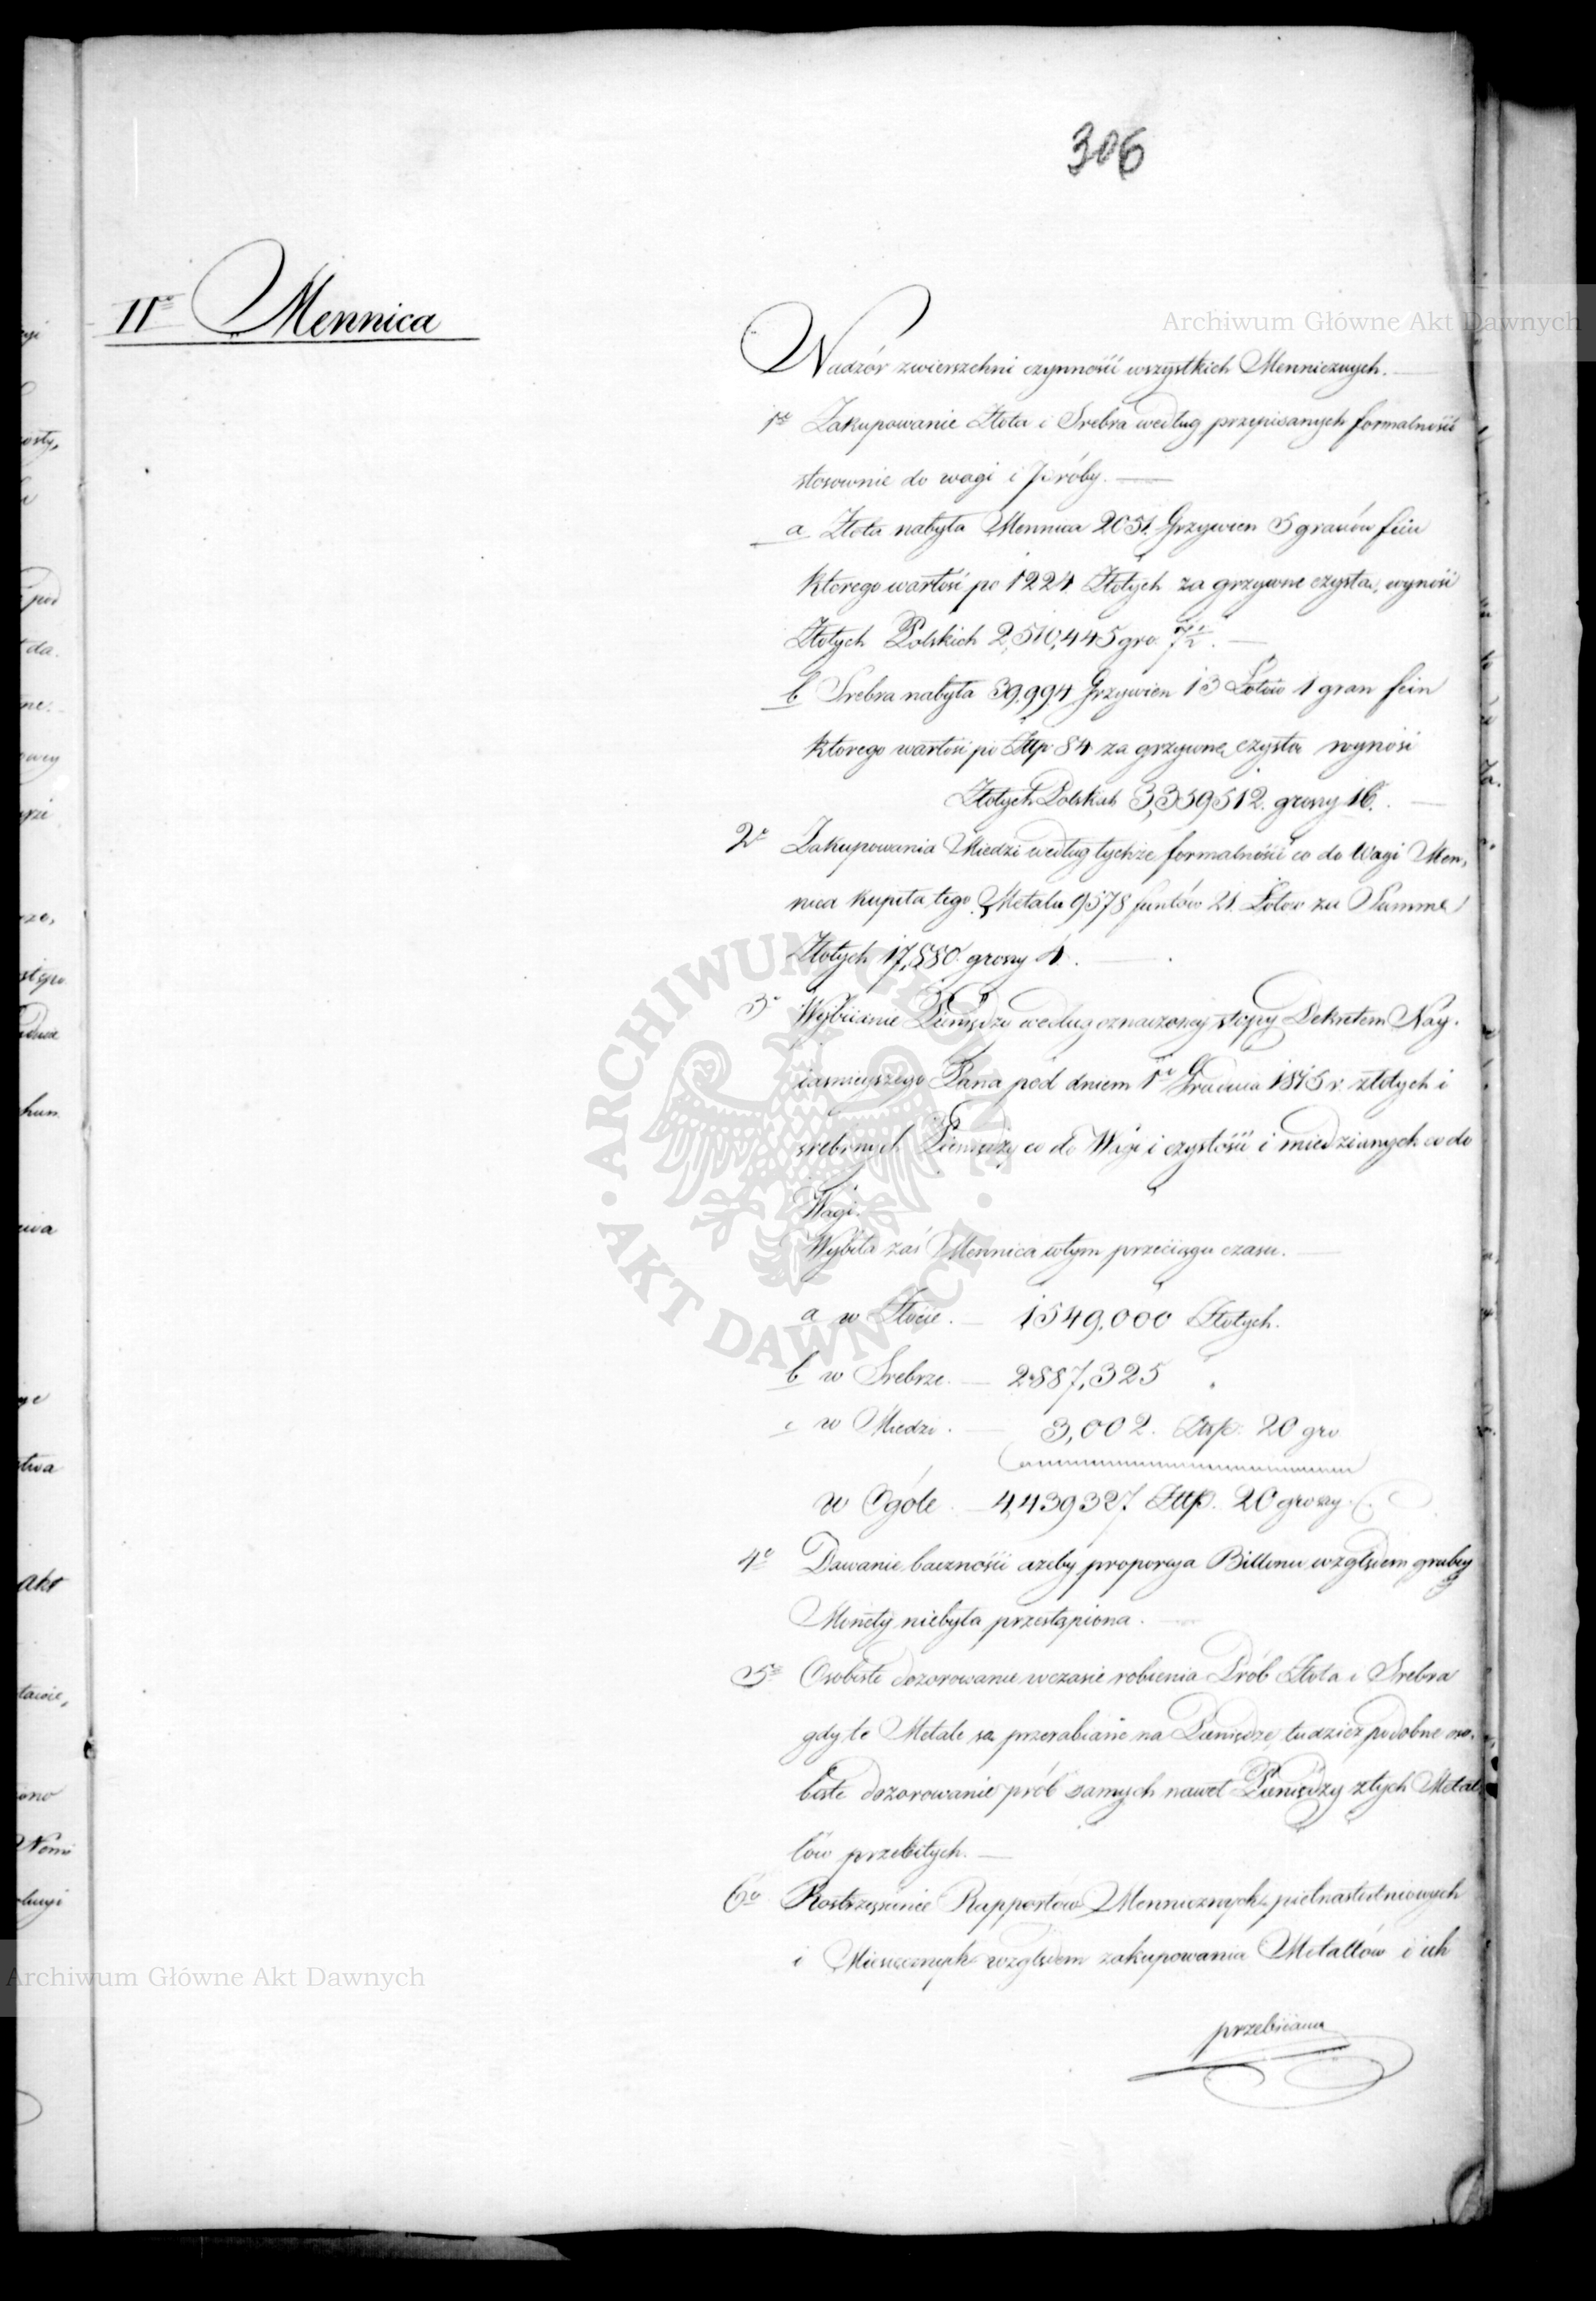 306
IIº Mennica
Nadzór zwierszchni czynności wszystkich Menniczuych.
1º Zakupowanie Złota i Srebra według przepisanych formalności
stosownie do wagi i Próby.
a Złota nabyła Mennica 2051. Grzywien 5 granów fein
ktorego wartość po 1224 Złotych za grzywnę czystą, wynosi
Złotych Polskich 2,510,445 gro. 7½.
b Srebra nabyła 39,994 Grzywien 13 Łotów 1 gran fein
ktorego wartość po Złtp 84 za grzywnę czystą wynosi
Złotych Polskich 3,359512. groszy 16.
2º Zakupowania Miedzi według tychże formalności co do Wagi Men,
nica kupiła tego Metalu 9578 funtów 21. Łotow za Summę
Złotych 17,880 groszy 4.
3º Wybiianie Pieniędzy według oznaczoney stopy Dekretem Nay.
iasnieyszego Pana pod dniem 1º Grudnia 1815 r. złotych i
srebrnych Pieniędzy co do Wagi i czystości i miedzianych co do
Wagi.
Wybiła zaś Mennica wtym przeciągu czasu.
a w Złocie. — 1549,000 Złotych.
b w Srebrze. — 2887,325 "
c w Miedzi. — 3,002. Złtp. 20 gro
w Ogóle — 4,439327 Złtp. 20 groszy.
4º Dawanie baczności azeby proporcya Billonu względem grubey
Monety niebyła przestąpiona.
5º Osobiste dozorowanie wczasie robienia Prób Złota i Srebra
gdy te Metale są przerabiane na Pieniędze, tudziez podobne oso,
biste dozorowanie prób samych nawet Pieniędzy ztych Metal
lów przebitych.
6º Rostrząsienie Rapportów Mennicznych pietnastodniowych
i Miesięcznych względem zakupowania Metallów i ich
przebiiania
Archiwum Główne Akt Dawnych
ARCHIWUM GŁÓWNE · AKT DAWNYCH ·
Archiwum Główne Akt Dawnych